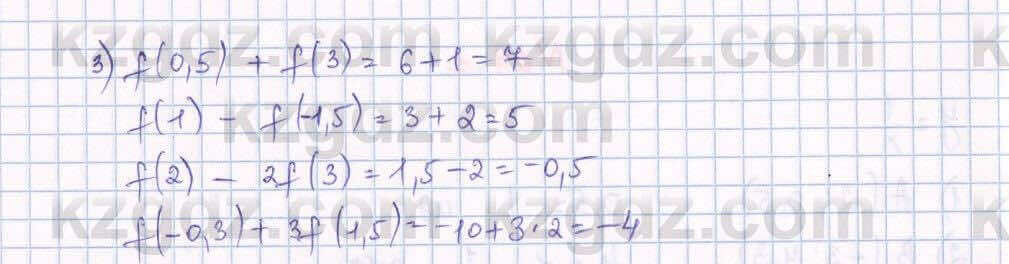 3) f(0,5) + f(3) = 6+1=7
f(1) - f(-1,5) = 3+2=5
f(2) - 2f(3) = 1,5-2=-0,5
f(-0,3)+ 3f(1,5)=-10+3·2=-4
kzgdz.com
kzgdz.com
kzgdz.com